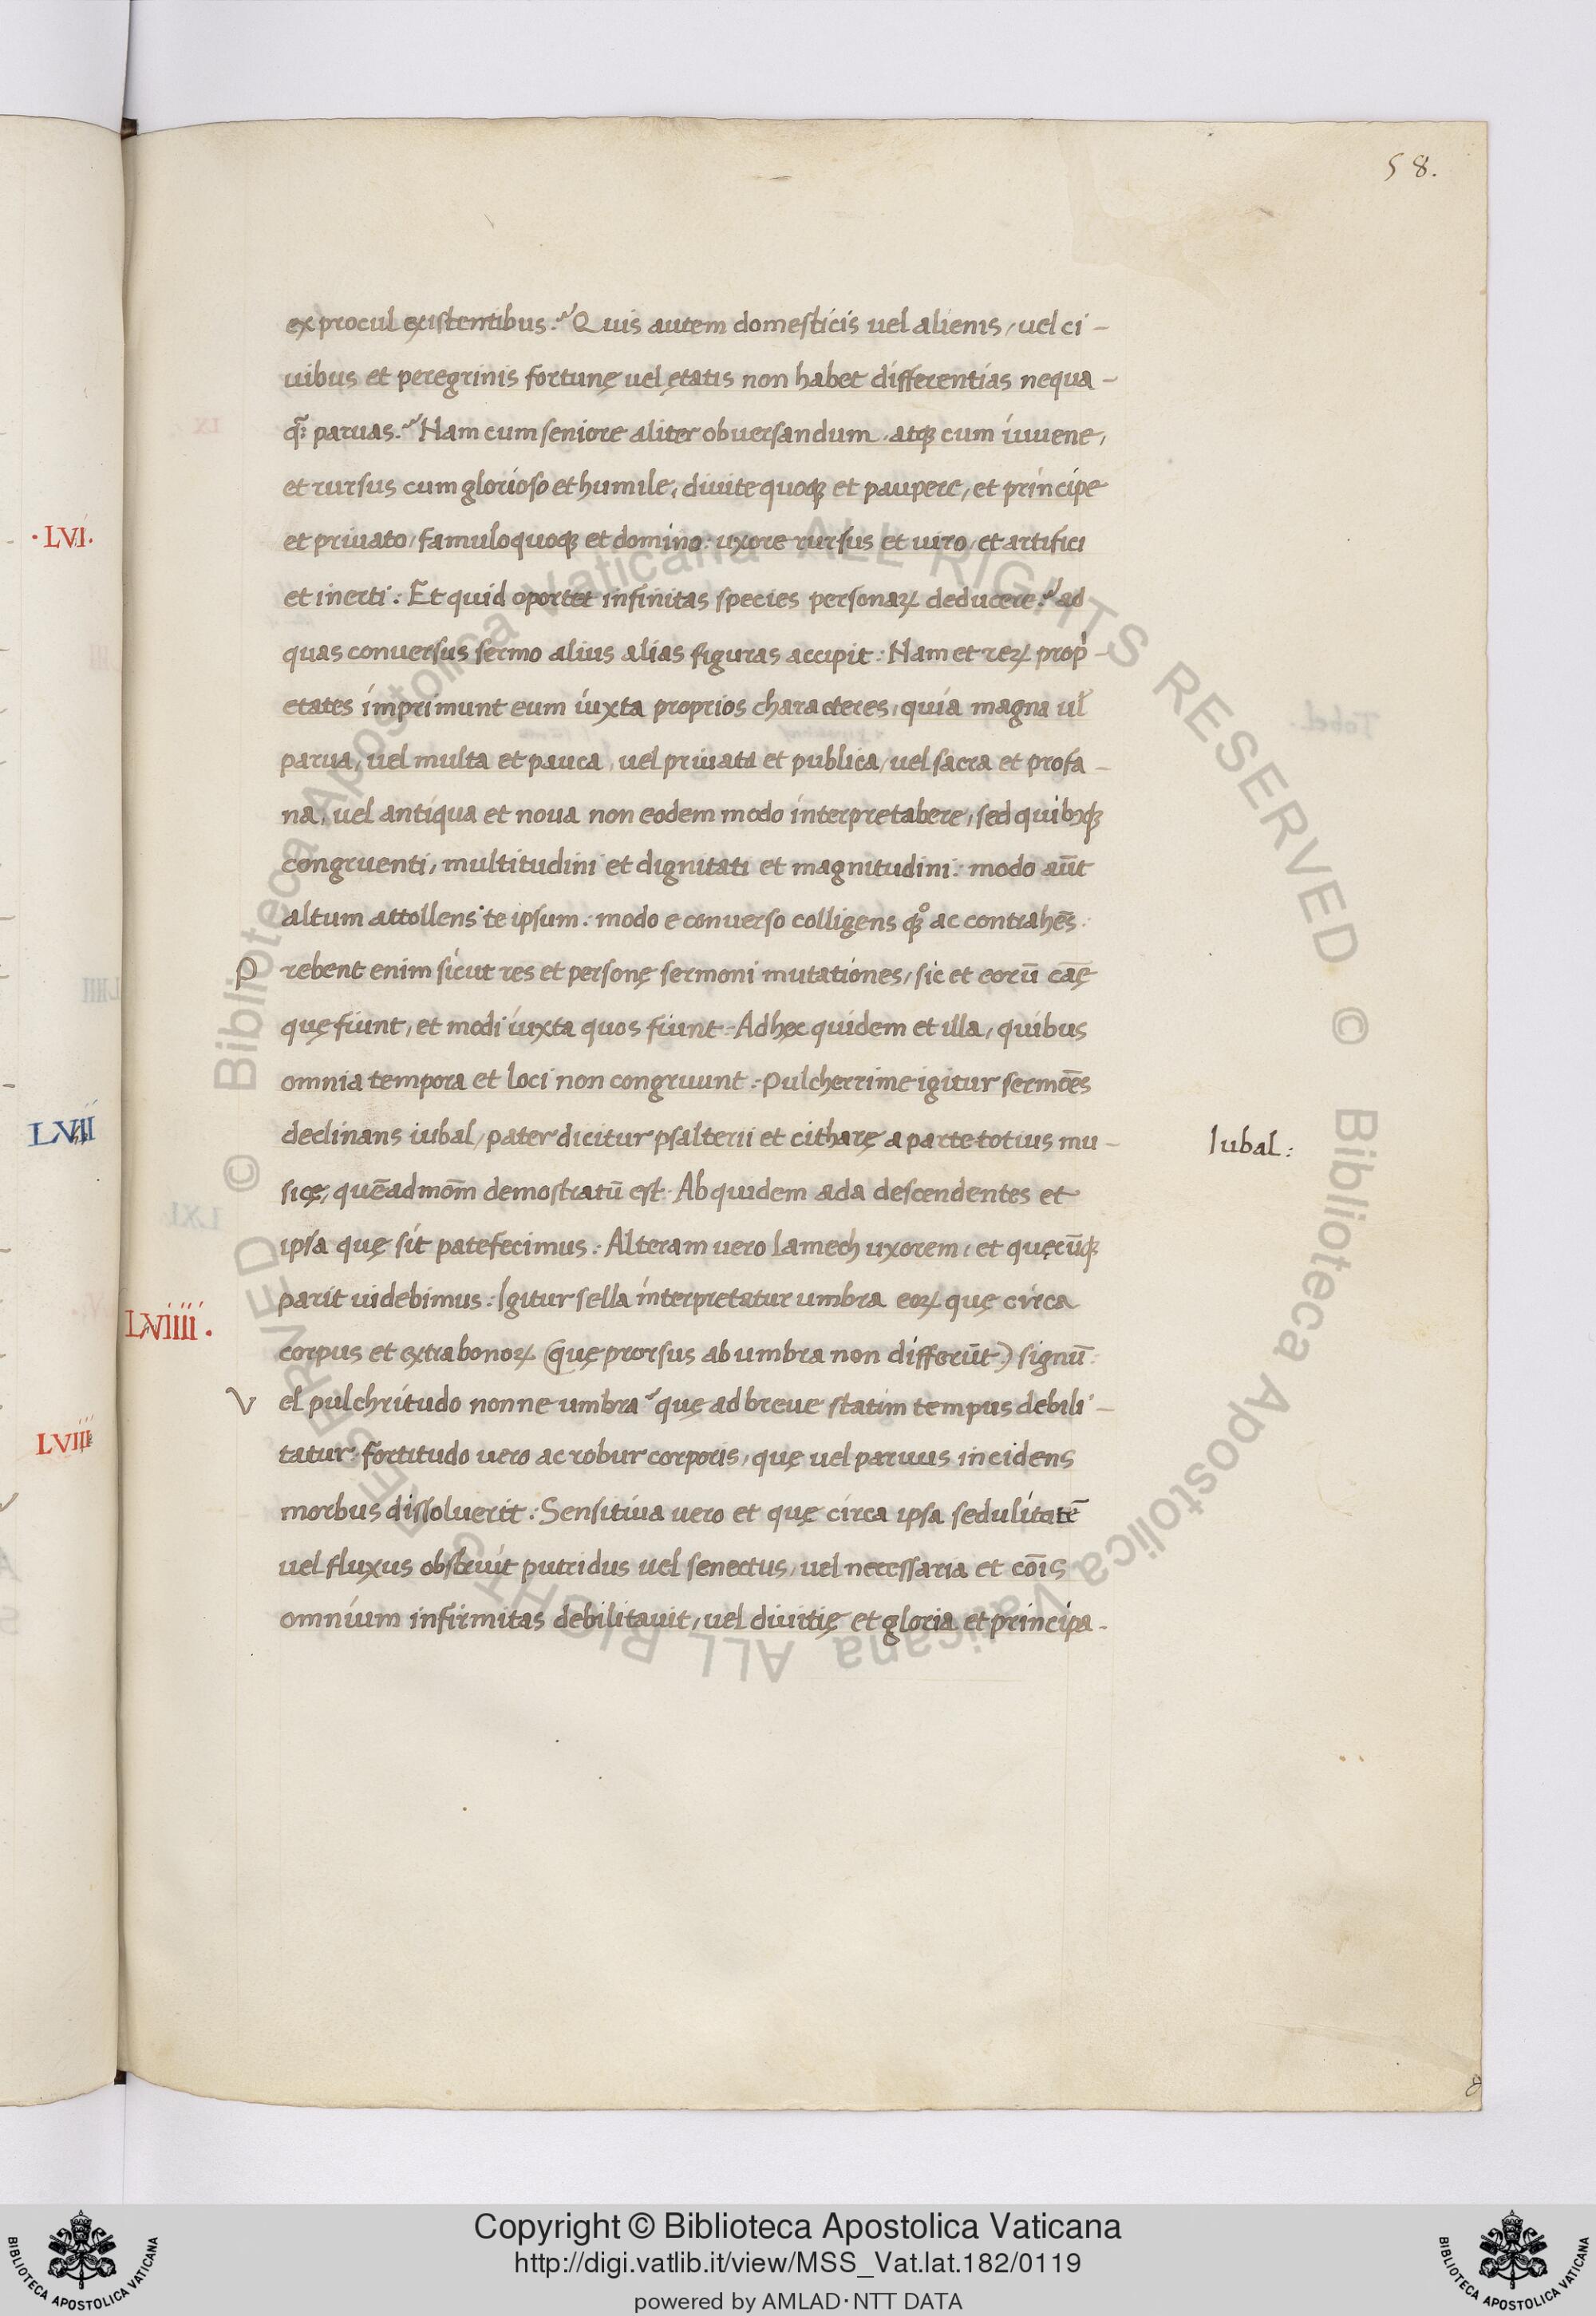 58.
ex procul existentibus? Quis autem domesticis uel alienis, uel ci-
uibus et peregrinis fortunę uel ętatis non habet differentias nequa-
q̃ȝ paruas? Nam cum seniore aliter obuersandum, atqꝫ cum iuuene,
et rursus cum glorioso et humile, diuite quoqꝫ et paupere, et principe
·LVI·
et priuato, famulo quoqꝫ et domino: uxore rursus et uiro, et artifici
et inerti: Et quid oportet infinitas species personaꝝ deducere? ad
quas conuersus sermo alius alias figuras accipit: Nam et reꝝ prop̍-
etates imprimunt eum iuxta proprios characteres, quia magna ul̃
parua, uel multa et pauca, uel priuata et publica, uel sacra et profa-
na, uel antiqua et noua non eodem modo interpretabere, sed quibꝰqꝫ
congruenti, multitudini et dignitati et magnitudini: modo aūt
altum attollens te ipsum: modo e conuerso colligens qꝫͦ ac contrahēs:
Prebent enim sicut res et personę sermoni mutationes, sic et eorū cāę
quę fiunt, et modi iuxta quos fiunt: Ad hęc quidem et illa, quibus
omnia tempora et loci non congruunt: Pulcherrime igitur sermōēs
LVII
declinans iubal, pater dicitur psalterii et citharę a parte totius mu-
Iubal:
sicę, quēadmōm demostratū est: Ab quidem ada descendentes et
ipsa quę sit patefecimus: Alteram uero lamech uxorem, et quęcūqꝫ
parit uidebimus: Igitur sella interpretatur umbra eoꝝ quę circa
LVIIII.
corpus et extra bonoꝝ (quę prorsus ab umbra non differūt) signū:
Vel pulchritudo nonne umbra? quę ad breue statim tempus debili-
LVIII
tatur: fortitudo uero ac robur corporis, quę uel paruus incidens
morbus dissoluerit: Sensitiua uero et quę circa ipsa sedulitatē
uel fluxus obstruit putridus uel senectus, uel necessaria et cōis
omnium infirmitas debilitauit, uel diuitię et gloria et principa-
© Biblioteca Apostolica Vaticana ALL RIGHTS RESERVED © Biblioteca Apostolica Vaticana ALL RIGHTS RESERVED
Copyright © Biblioteca Apostolica Vaticana
http://digi.vatlib.it/view/MSS_Vat.lat.182/0119
powered by AMLAD·NTT DATA
BIBLIOTECA APOSTOLICA VATICANA
BIBLIOTECA APOSTOLICA VATICANA